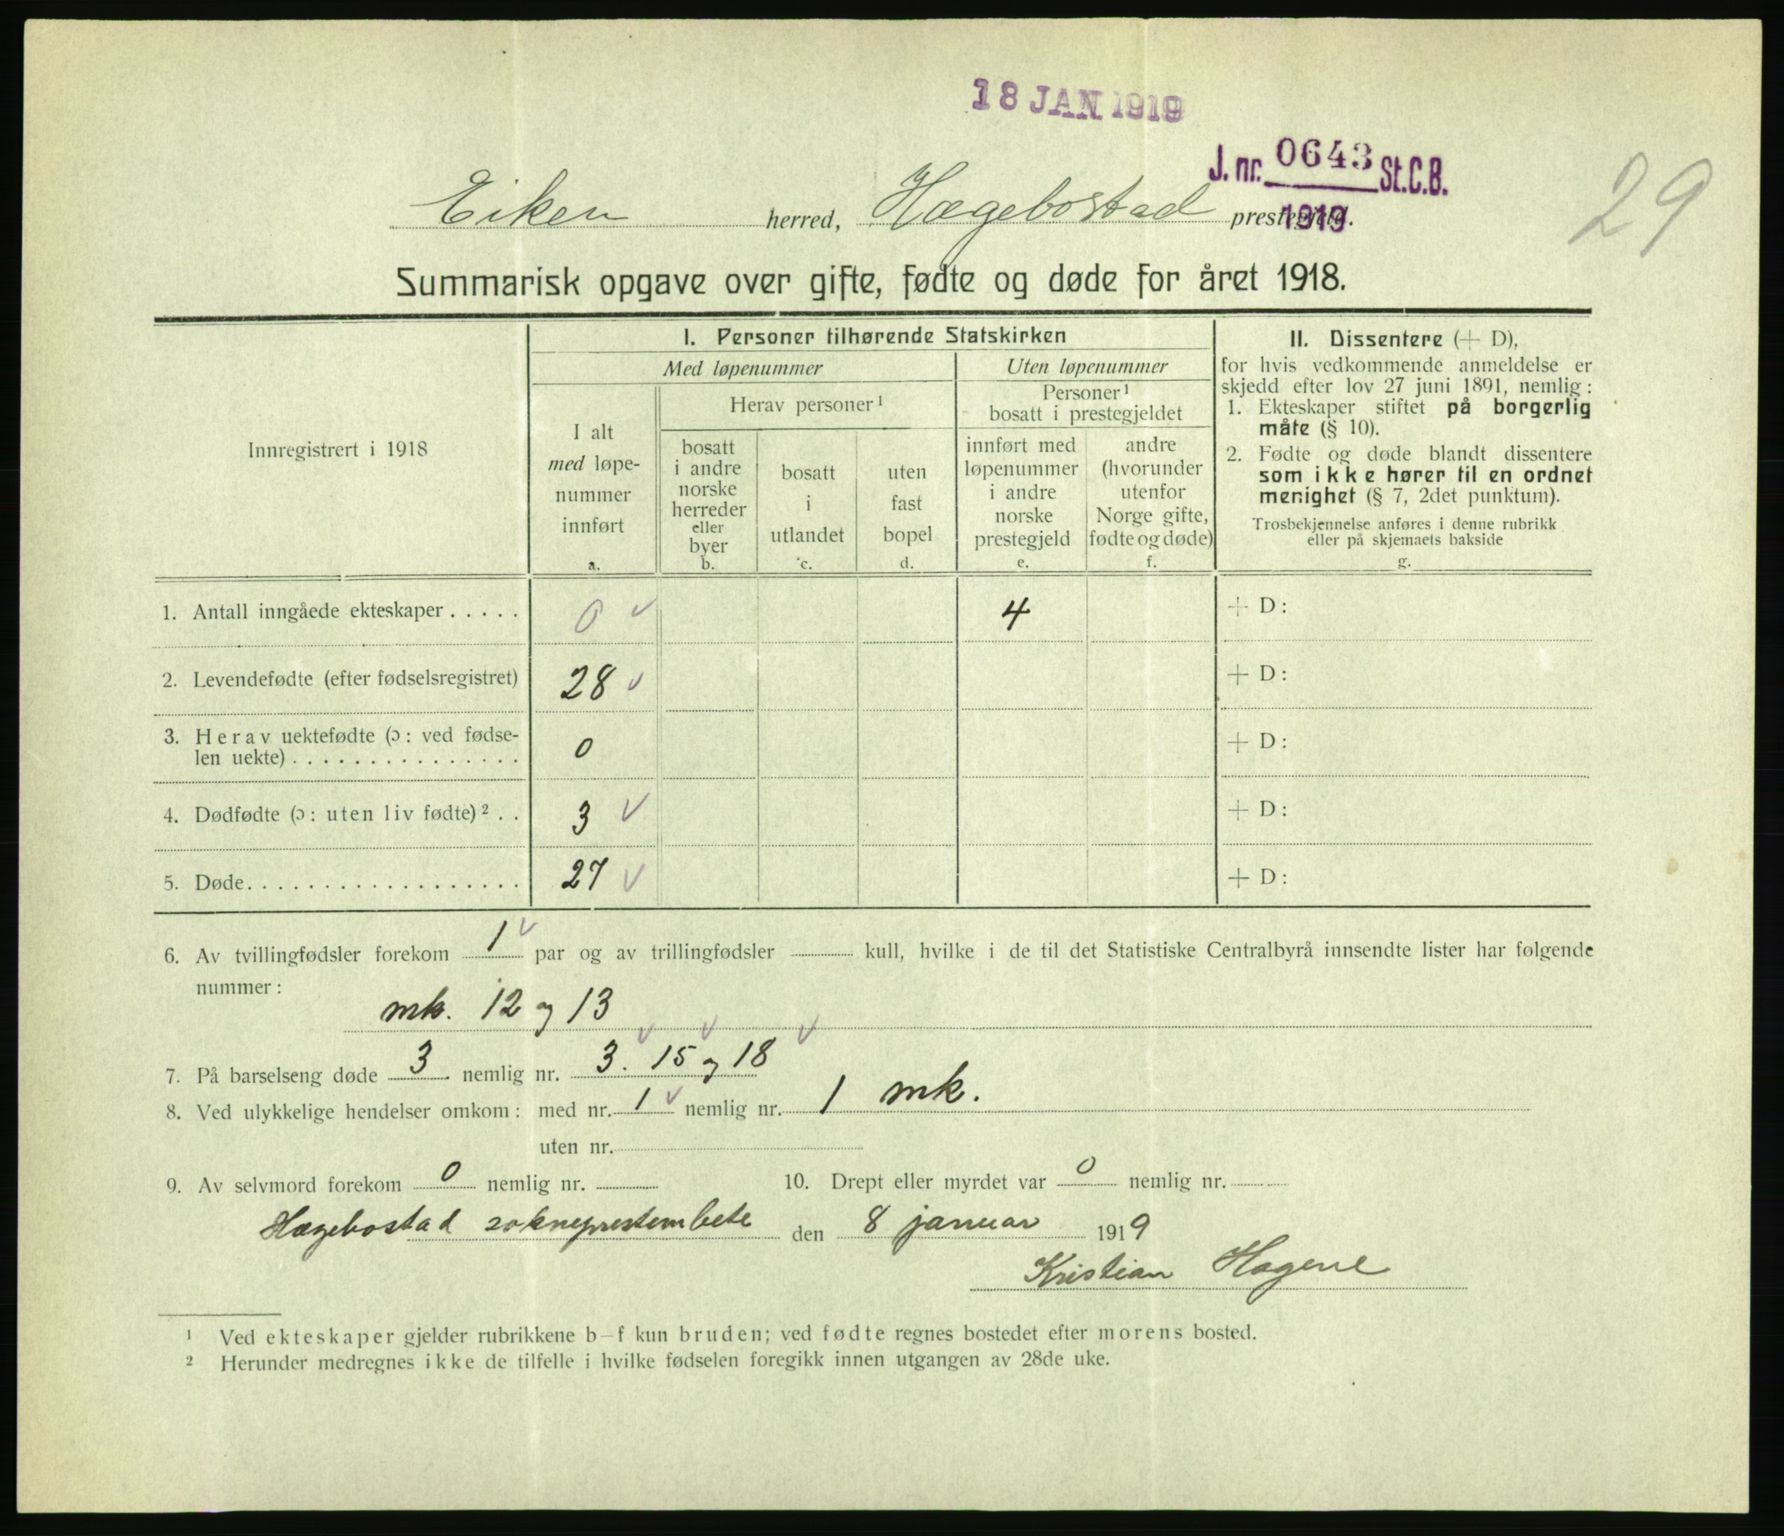 18 JAN 1919
J. nr. 0643 St.C.B.
1919
29
Eiken herred, Hægebostad prestegjeld.
Summarisk opgave over gifte, fødte og døde for året 1918.
Innregistrert i 1918
I. Personer tilhørende Statskirken
Med løpenummer
Uten løpenummer
I alt
med løpe-
nummer
innført
a.
Herav personer ¹
bosatt
i andre
norske
herreder
eller
byer
b.
bosatt
i
utlandet
c.
uten
fast
bopel
d.
Personer ¹
bosatt i prestegjeldet
innført med
løpenummer
i andre
norske
prestegjeld
e.
andre
(hvorunder
utenfor
Norge gifte,
fødte og døde)
f.
II. Dissentere (+ D),
for hvis vedkommende anmeldelse er
skjedd efter lov 27 juni 1891, nemlig:
1. Ekteskaper stiftet på borgerlig
måte (§ 10).
2. Fødte og døde blandt dissentere
som ikke hører til en ordnet
menighet (§ 7, 2det punktum).
Trosbekjennelse anføres i denne rubrikk
eller på skjemaets bakside
g.
1. Antall inngåede ekteskaper . . . . . 0 ✓ 4 + D:
2. Levendefødte (efter fødselsregistret) 28 ✓ + D:
3. Herav uektefødte (ɔ: ved fødse-
len uekte) . . . . . . . . . . . . . . . 0 + D:
4. Dødfødte (ɔ: uten liv fødte) ² . . 3 ✓ + D:
5. Døde. . . . . . . . . . . . . . . . . . 27 ✓ + D:
6. Av tvillingfødsler forekom 1 ✓ par og av trillingfødsler ........ kull, hvilke i de til det Statistiske Centralbyrå innsendte lister har følgende
nummer:
mk. 12 og 13
7. På barselseng døde 3 nemlig nr. 3. ✓ 15 ✓ og 18 ✓
8. Ved ulykkelige hendelser omkom: med nr. 1 ✓ nemlig nr. 1 mk.
uten nr.
9. Av selvmord forekom 0 nemlig nr. ........ 10. Drept eller myrdet var 0 nemlig nr. ........
Hægebostad sokneprestembete den 8 januar 1919
Kristian Hagene
¹ Ved ekteskaper gjelder rubrikkene b–f kun bruden; ved fødte regnes bostedet efter morens bosted.
² Herunder medregnes ikke de tilfelle i hvilke fødselen foregikk innen utgangen av 28de uke.